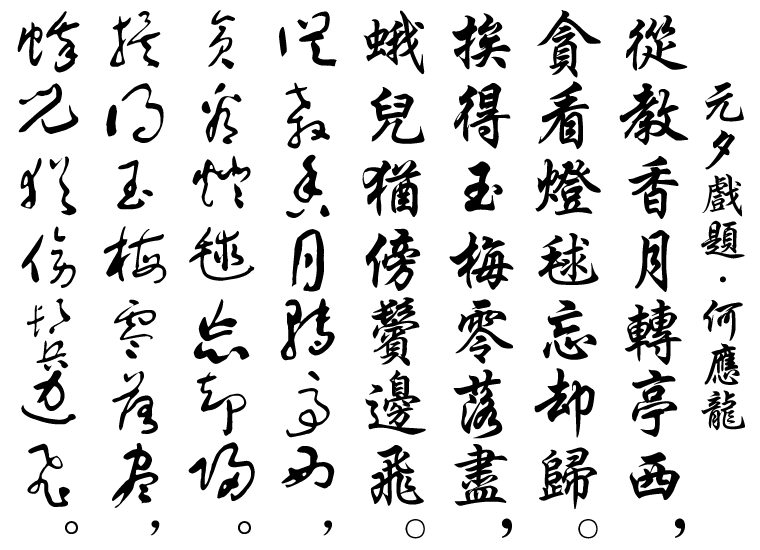 元夕戲題·何應龍
從教香月轉亭西，
貪看燈毬忘却歸。
挨得玉梅零落盡，
蛾兒猶傍鬢邊飛。
從教香月轉亭西，
貪看燈毬忘却歸。
挨得玉梅零落盡，
蛾兒猶傍鬢邊飛。